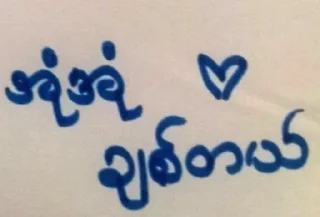 အုံအုံ
ချစ်တယ်